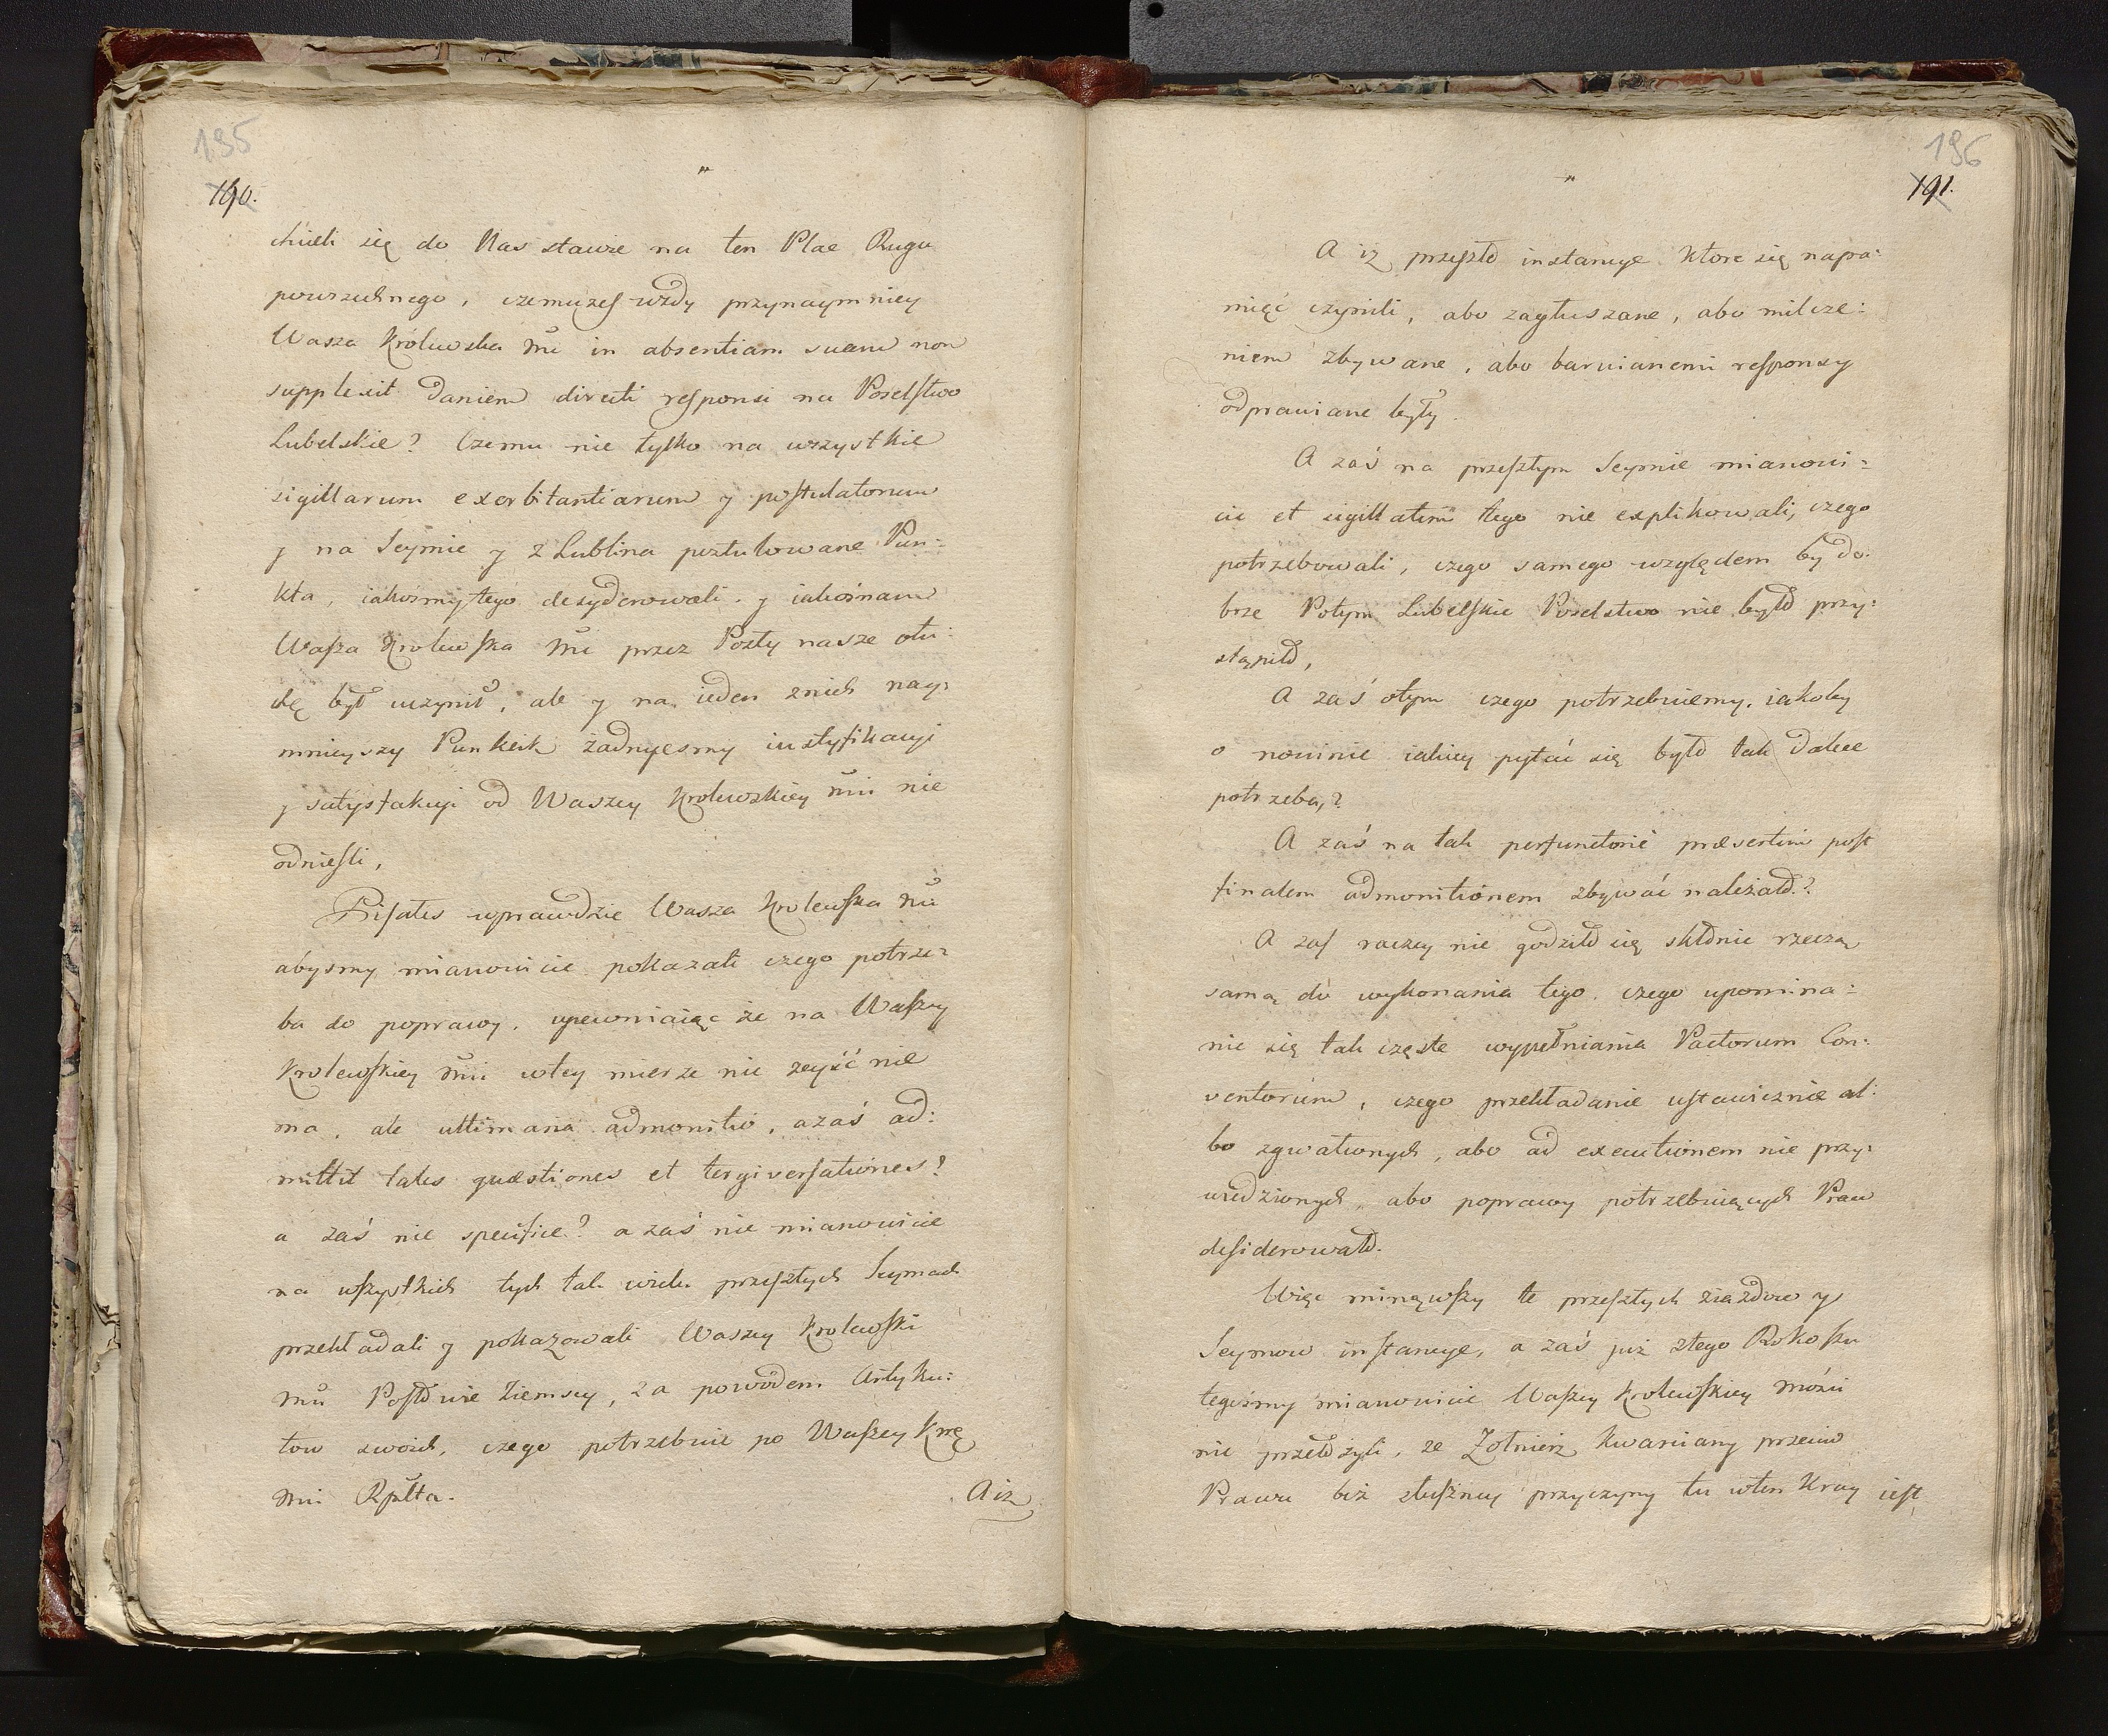 195
190.
chieli się do Nas stawie na ten Plac Rugu
powszechnego, czemuzesz wzdy przynaymniey
Wasza Krolewska Mć in absentiam suam non
supplevit Daniem directi responsi na Poselstwo
Lubelskie? Czemu nie tylko na wszystkie
sigillarum exorbitantiarum y postulatorum
y na Seymie y z Lublina postulowane Pun-
kta, iakosmy tego desyderowali y iakoś nam
Wasza Krolewska Mć przez Posły nasze otu-
chę był uczynił, ale y na ieden z nich nay-
mnieyszy Punkcik żadnyesmy iustyfikacyi
y satysfakcyi od Waszey Krolewskiey Mći nie
odnieśli,
Pisałes wprawdzie Wasza Krolewska Mć
abysmy mianowicie pokazali czego potrze-
ba do poprawy, upewniaiąc że na Waszey
Krolewskiey Mći wtey mierze nic zeyść nie
ma, ale ultimaria admonitio, azaś ad:
mittit tales quæstiones et tergiversationes?
a zaś nie specifice? a zaś nie mianowicie
na wszystkich tych tak wielu przeszłych Seymach
przekładali y pokazowali Waszey Krolewski
Mći Posłowie Ziemscy, za powodem Artyku:
łow swoich, czego potrzebuie po Waszey Krę
Mći Rplta.
A iz
196
191.
A iż przeszło instancye ktore się napa:
mięć czynili, abo zagłuszane, abo milcze:
niem zbywane, abo barwianemi responsy
odprawiane były.
A zaś na przeszłym Seymie mianowi:
cie et sigillatim tego nie explikowali, czego
potrzebowali, czego samego względem by do:
brze Potym Lubelskie Poselstwo nie było przy:
stąpiło,
A zaś otym czego potrzebuiemy, iakoby
o nowinie iakiey pytać się było tak dalece
potrzeba,?
A zaś na tak perfunctorié præsertim post
finalem admonitionem zbywać należało?
A zas raczey nie godziło się skłonić rzeczą
samą do wykonania tego, czego upomina:
nie się tak częste wypełniania Pactorum Con:
ventorum, czego przekładanie ustawicznie al:
bo zgwałconych, abo ad executionem nie przy:
wiedzionych, abo poprawy potrzebuiących Praw
desiderowało.
Więc minąwszy te przeszłych ziazdow y
Seymow instancye, a zaś już z tego Rokoszu
tegośmy mianowicie Waszey Krolewskiey Mości
nie przełożyli, ze Żołnierz kwarciany przeciw
Prawu bez słuszney przyczyny tu wten Kray iest